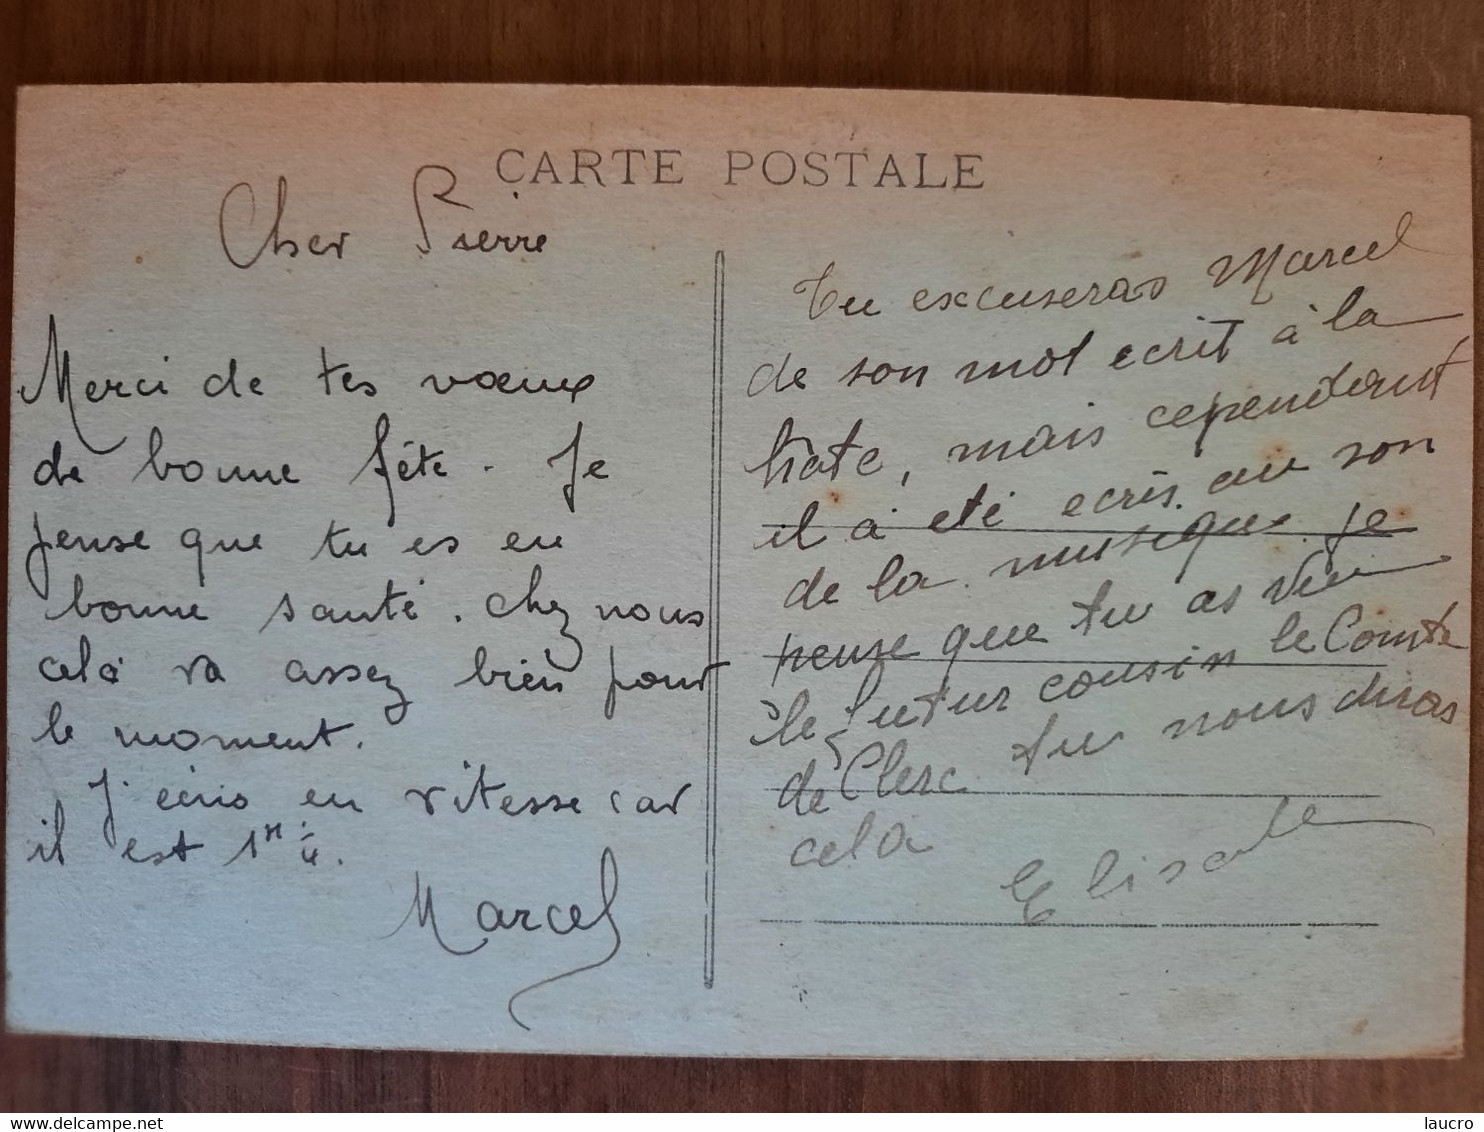 CARTE POSTALE
Cher Pierre
Merci de tes vœux
de bonne fête. Je
pense que tu es en
bonne santé. Chez nous
celà va assez bien pour
le moment.
J'écris en vitesse car
il est 1h
Marcel
Tu excuseras Marcel
de son mot ecrit à la
hate, mais cependant
il à eté ecris au son
de la musique. je
pense que tu as vu
le futur cousin le Comte
de Clerc tu nous diras
cela
Elisabe
delcampe.net
laucro